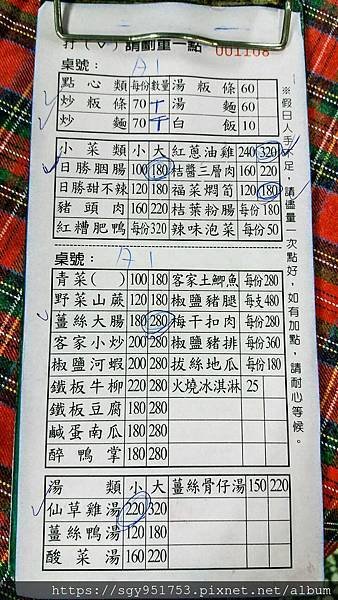 打(V)請劃重一點 001108
桌號: A1
點心類 每份 數量 湯粄條 60
炒粄條 70 湯麵 60
炒麵 70 白飯 10
小菜類 小 大 紅蔥油雞 240 320
日勝胭腸 100 180 桔醬三層肉 160 220
日勝甜不辣 120 180 福菜燜筍 120 180
豬頭肉 160 220 桔葉粉腸 每份180
紅糟肥鴨 每份320 辣味泡菜 每份50
桌號: A1
青菜( ) 100 180 客家土鯽魚 每份280
野菜山蕨 120 180 椒鹽豬腿 每支480
薑絲大腸 180 280 梅干扣肉 每份280
客家小炒 200 280 椒鹽豬排 每份360
椒鹽河蝦 200 280 拔絲地瓜 每份180
鐵板牛柳 220 280 火燒冰淇淋 25
鐵板豆腐 180 280
鹹蛋南瓜 180 280
醉鴨掌 180 280
湯類 小 大 薑絲骨仔湯 150 220
仙草雞湯 220 320
薑絲鴨湯 120 180
酸菜湯 160 220
※假日人手不足,請儘量一次點好,如有加點,請耐心等候。
https://sgy951753.pixnet.net/album